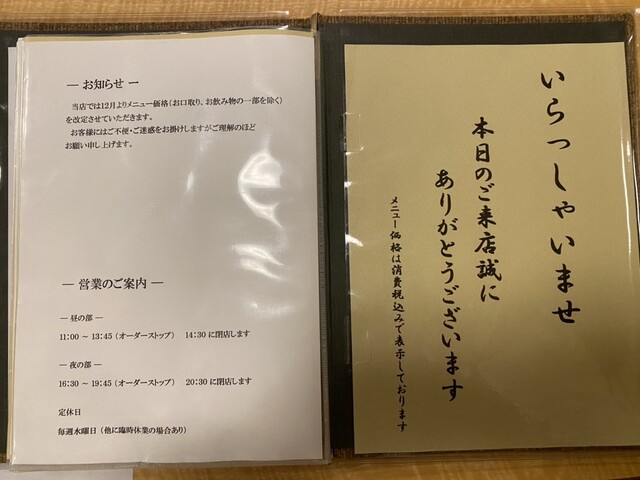 — お知らせ —
当店では12月よりメニュー価格（お口取り、お飲み物の一部を除く）
を改定させていただきます。
お客様にはご不便・ご迷惑をお掛けしますがご理解のほど
お願い申し上げます。
— 営業のご案内 —
— 昼の部 —
11：00 ～ 13：45 （オーダーストップ） 14：30 に閉店します
— 夜の部 —
16：30 ～ 19：45 （オーダーストップ） 20：30 に閉店します
定休日
毎週水曜日 （他に臨時休業の場合あり）
いらっしゃいませ
本日のご来店誠に
ありがとうございます
メニュー価格は消費税込みで表示しております